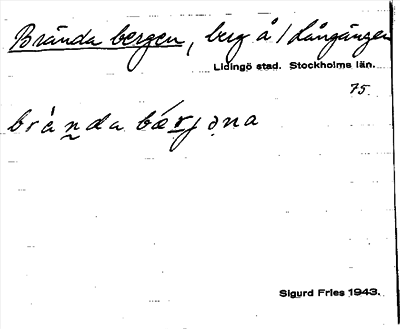 Brända bergen, berg å Långängen
Lidingö stad. Stockholms län.
75.
brända bærjəna
Sigurd Fries 1943.